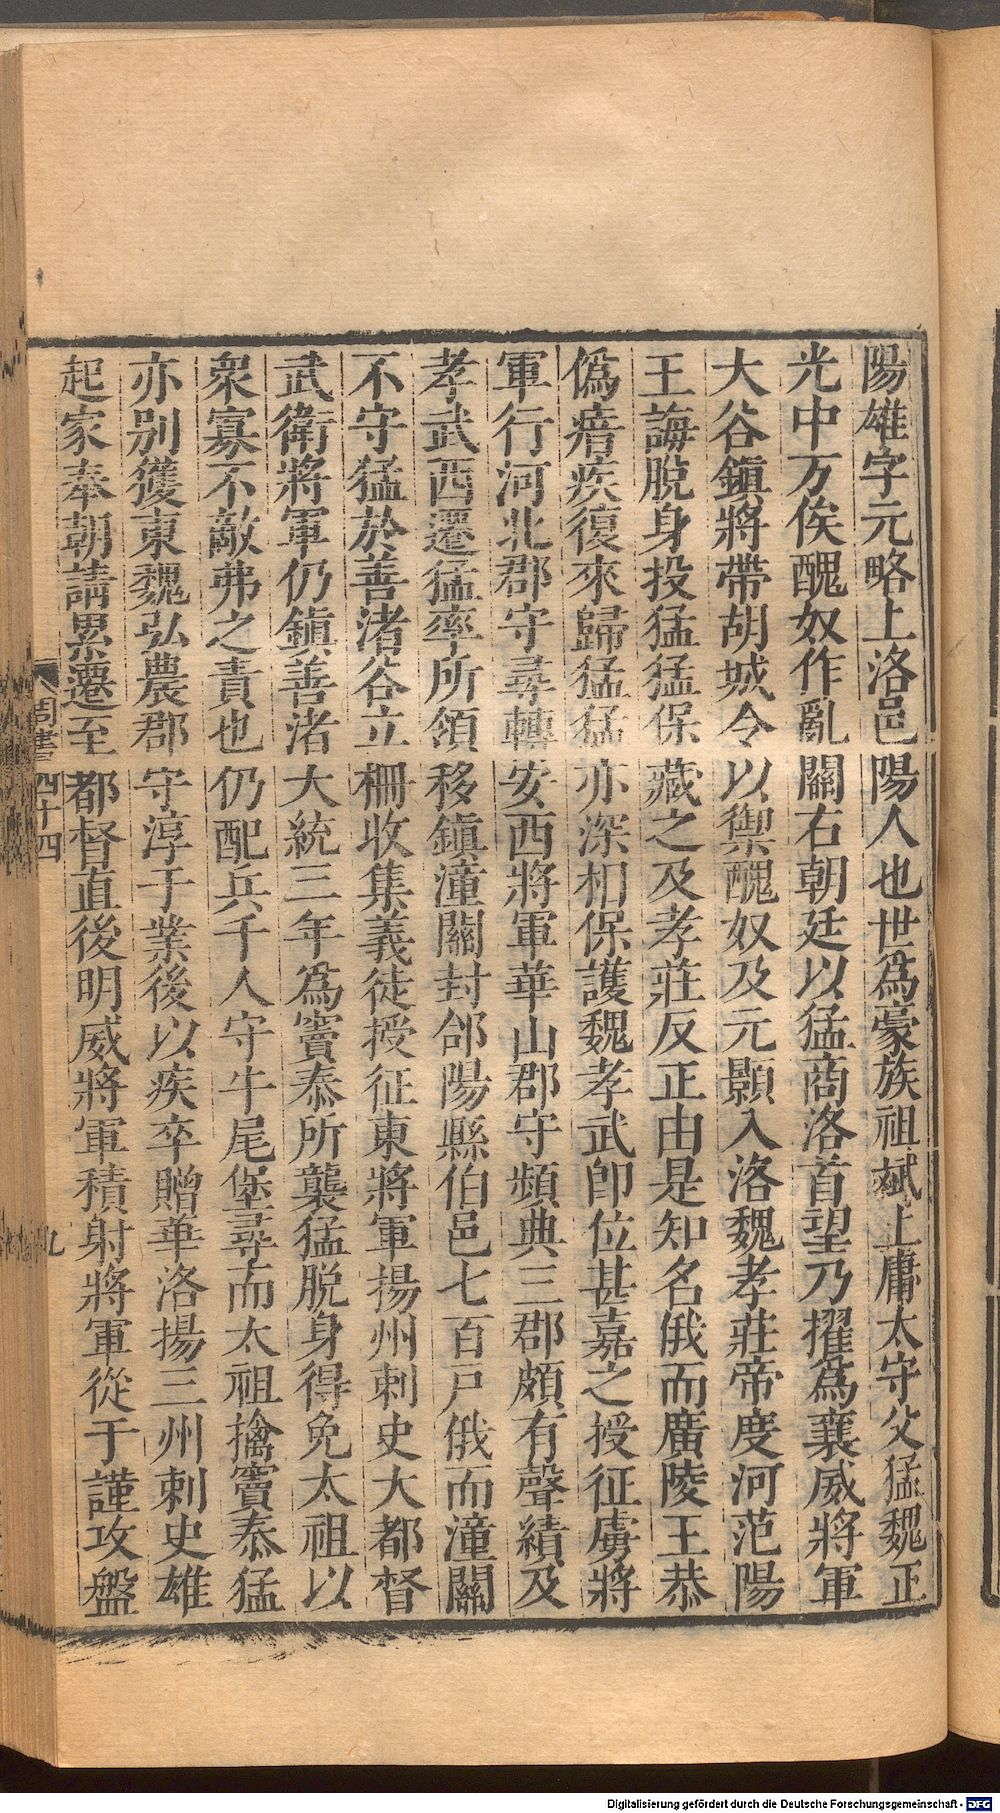 陽雄字元略上洛邑陽人也世爲豪族祖斌上庸太守父猛魏正
光中万俟醜奴作亂關右朝廷以猛商洛首望乃擢爲襄威將軍
大谷鎮將帶胡城令以禦醜奴及元顥入洛魏孝莊帝度河范陽
王誨脫身投猛猛保藏之及孝莊反正由是知名俄而廣陵王恭
僞瘖疾復來歸猛猛亦深相保護魏孝武卽位甚嘉之授征虜將
軍行河北郡守尋轉安西將軍華山郡守頻典三郡頗有聲績及
孝武西遷猛率所領移鎮潼關封郃陽縣伯邑七百戸俄而潼關
不守猛於善渚谷立柵收集義徒授征東將軍揚州刺史大都督
武衛將軍仍鎮善渚大統三年爲竇泰所襲猛脫身得免太祖以
衆寡不敵弗之責也仍配兵千人守牛尾堡尋而太祖擒竇泰猛
亦别獲東魏弘農郡守淳于業後以疾卒贈華洛揚三州刺史雄
起家奉朝請累遷至都督直後明威將軍積射將軍從于謹攻盤
周書四十四
九
Digitalisierung gefördert durch die Deutsche Forschungsgemeinschaft - DFG